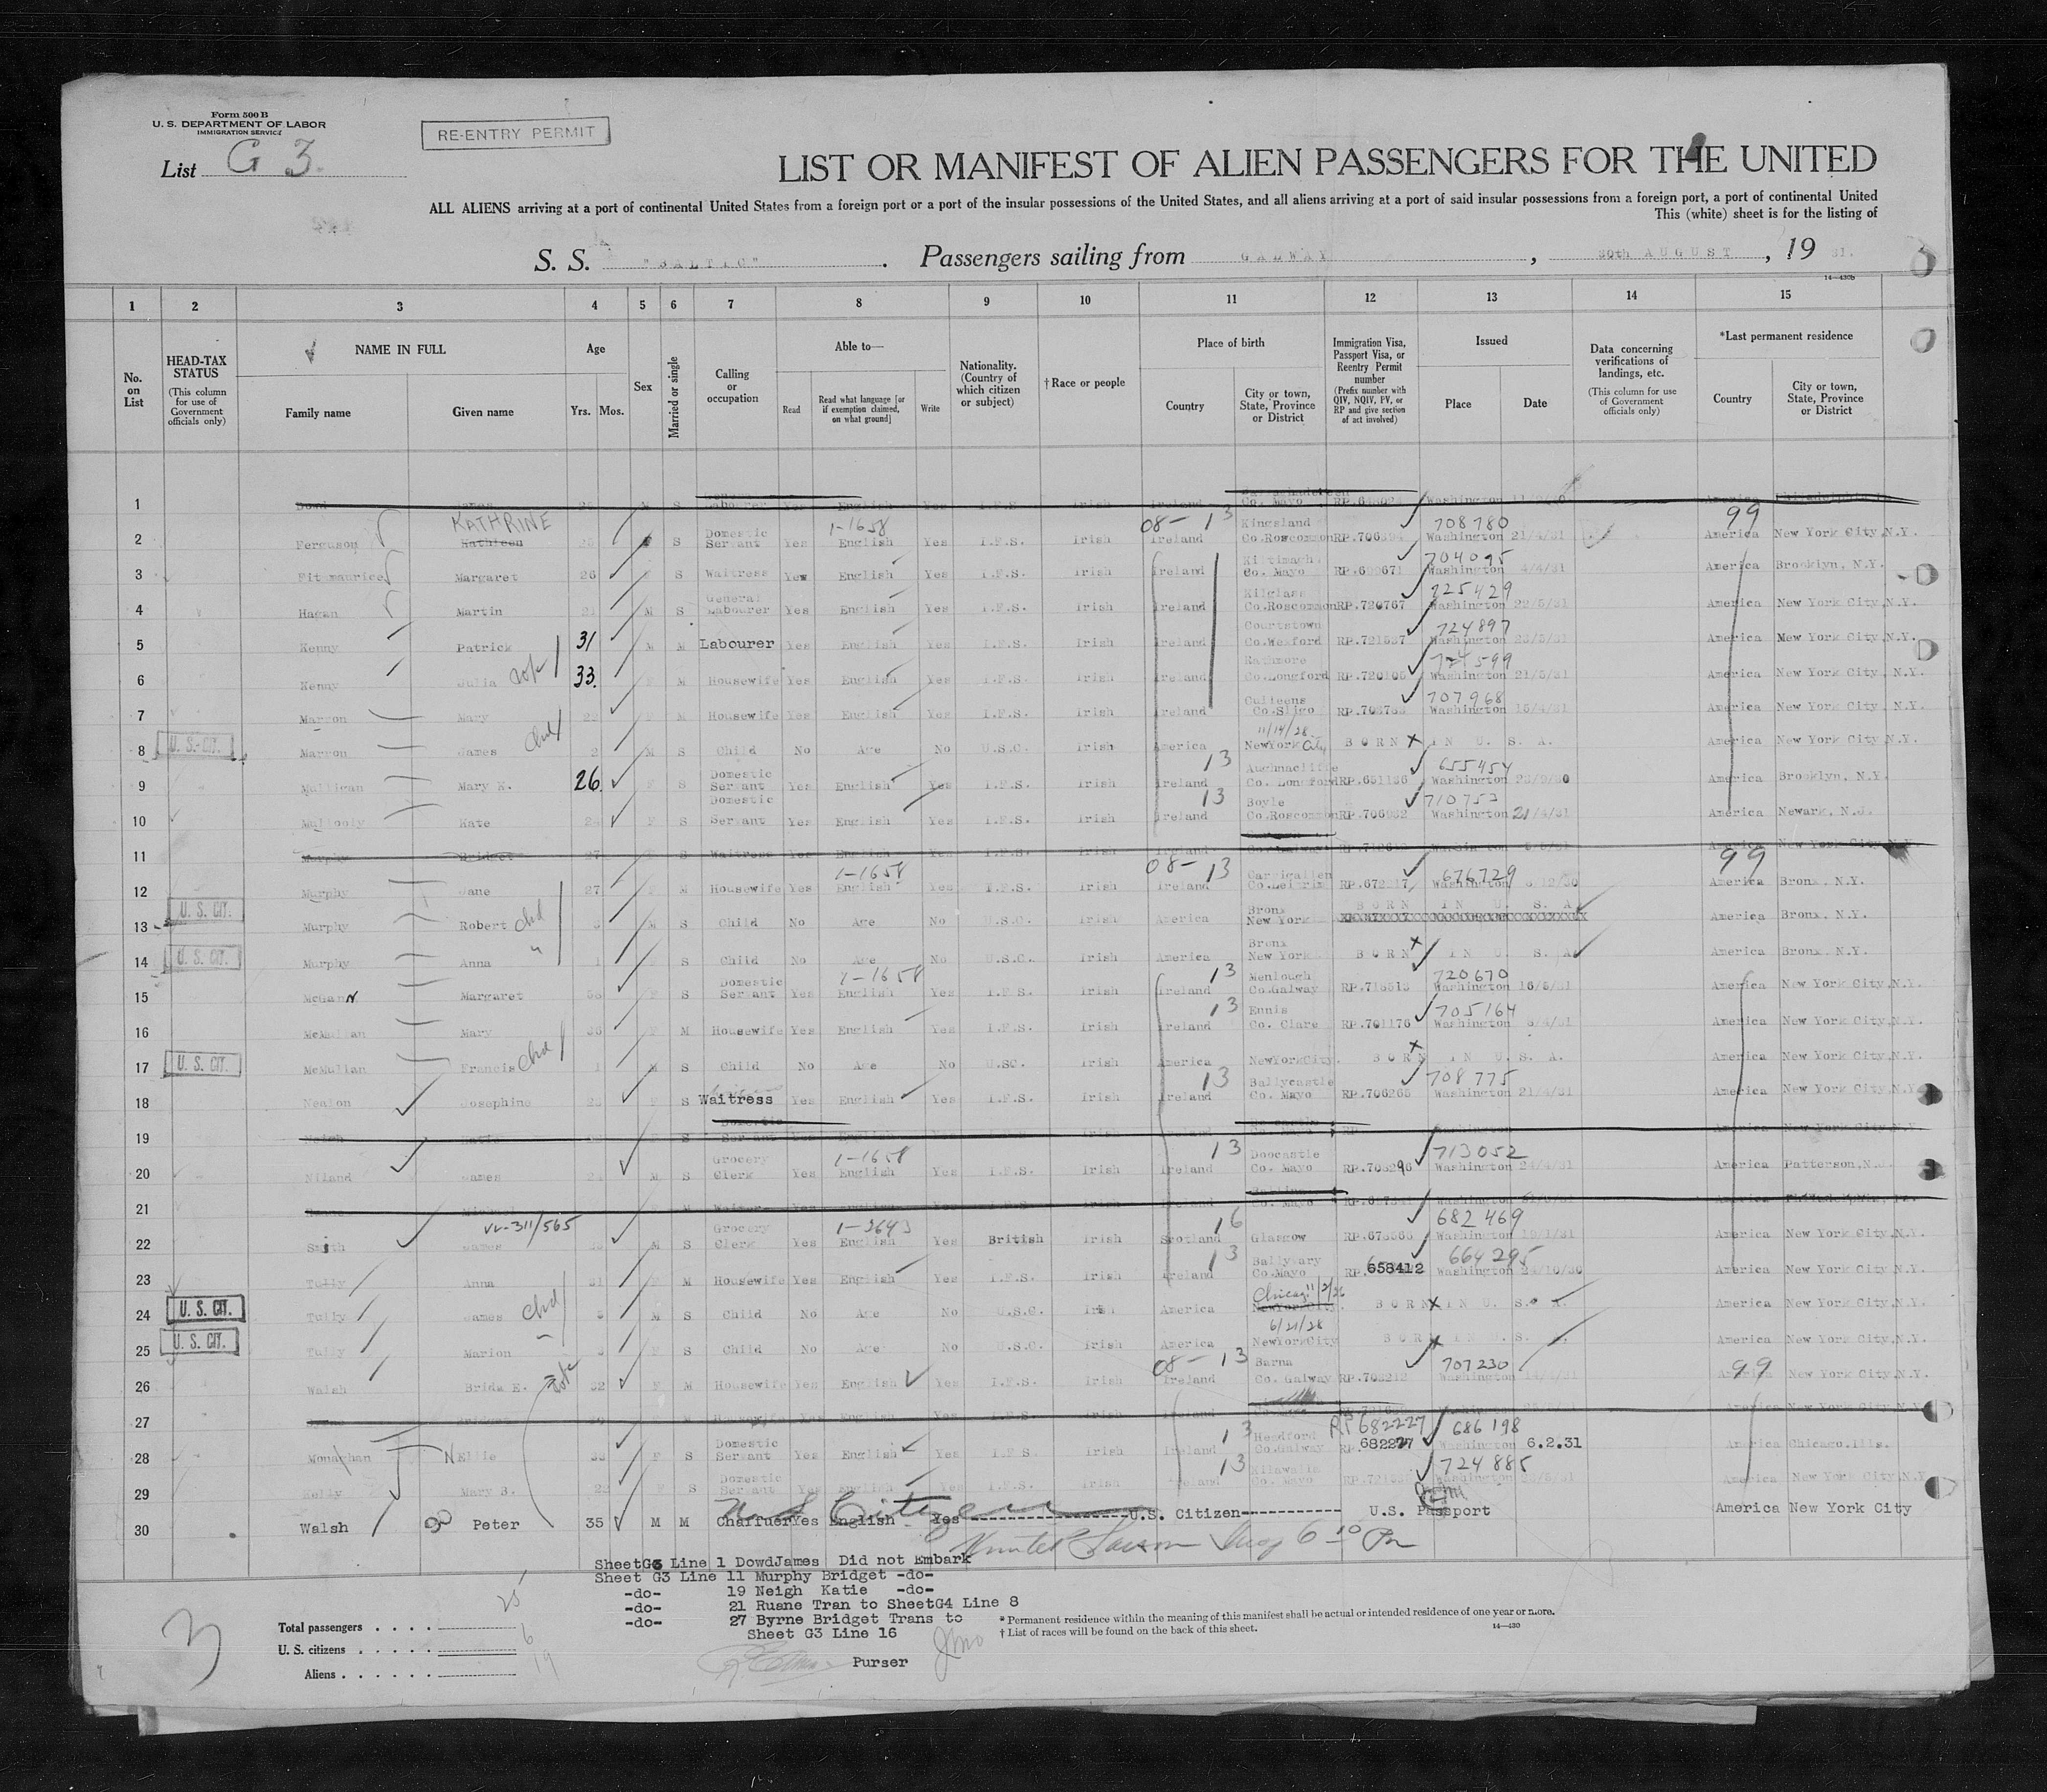 Form 500 B
U. S. DEPARTMENT OF LABOR
IMMIGRATION SERVICE
RE-ENTRY PERMIT
List G 3.
LIST OR MANIFEST OF ALIEN PASSENGERS FOR THE UNITED
ALL ALIENS arriving at a port of continental United States from a foreign port or a port of the insular possessions of the United States, and all aliens arriving at a port of said insular possessions from a foreign port, a port of continental United
This (white) sheet is for the listing of
S. S. "BALTIC". Passengers sailing from GALWAY, 30th AUGUST, 19 31.
14—430b
1 2 3 4 5 6 7 8 9 10 11 12 13 14 15
No. on List
HEAD-TAX STATUS (This column for use of Government officials only)
NAME IN FULL Family name Given name
Age Yrs. Mos.
Sex
Married or single
Calling or occupation
Able to— Read Read what language [or if exemption claimed, on what ground] Write
Nationality. (Country of which citizen or subject)
† Race or people
Place of birth Country City or town, State, Province or District
Immigration Visa, Passport Visa, or Reentry Permit number (Prefix number with QIV, NQIV, PV, or RP and give section of act involved)
Issued Place Date
Data concerning verifications of landings, etc. (This column for use of Government officials only)
*Last permanent residence Country City or town, State, Province or District
1 Dowd James M S Labourer Yes English Yes I.F.S. Irish Ireland Co. Mayo Washington
KATHRINE 1-1658 08- 13 Kingsland 708780 99
2 Ferguson Kathleen S Domestic Servant Yes English Yes I.F.S. Irish Ireland Co.Roscommon Washington 21/4/31 America New York City, N.Y.
13 Kiltimagh. 704095
3 Fitzmaurice Margaret 26 S Waitress Yes English Yes I.F.S. Irish Ireland Co. Mayo RP.699671 Washington 4/4/31 America Brooklyn, N.Y.
Kilglass 725429
4 Hagan Martin M S General Labourer Yes English Yes I.F.S. Irish Ireland Co.Roscommon RP.720767 Washington 22/5/31 America New York City, N.Y.
Courtstown 724897
5 Kenny Patrick 31 M M Labourer Yes English Yes I.F.S. Irish Ireland Co.Wexford RP.721537 Washington America New York City, N.Y.
Rathmore 724599
6 Kenny Julia 33. F M Housewife Yes English Yes I.F.S. Irish Ireland Co.Longford RP.720105 Washington 21/5/31 America New York City, N.Y.
Culleens 707968
7 Marron Mary F M Housewife Yes English Yes I.F.S. Irish Ireland Co.Sligo Washington 15/4/31 America New York City, N.Y.
11/14/28
8 U. S. CIT. Marron James chd 2 M S Child No Age No U.S.C. Irish America NewYork City BORN IN U. S. A. America New York City, N.Y.
13 Aughnacliffe 655454
9 Mulligan Mary K. 26. F S Domestic Servant Yes English Yes I.F.S. Irish Ireland Co. Longford RP.651136 Washington America Brooklyn, N.Y.
13 Boyle 710753
10 Mullooly Kate F S Domestic Servant Yes English Yes I.F.S. Irish Ireland Co.Roscommon RP.706932 Washington 21/4/31 America Newark, N.J.
11 Murphy Bridget 27 S Waitress Yes English Yes I.F.S. Irish Ireland Co.Galway Washington America New York City, N.Y.
1-1658 08- 13 Carrigallen 676729 99
12 Murphy Jane 27 F M Housewife Yes English Yes I.F.S. Irish Ireland Co.Leitrim Washington America Bronx, N.Y.
13 U. S. CIT. Murphy Robert chd M S Child No Age No U.S.C. Irish America Bronx New York BORN IN U. S. A. America Bronx, N.Y.
14 U. S. CIT. Murphy Anna " 1 F S Child No Age No U.S.C. Irish America Bronx New York BORN IN U. S. A. America Bronx, N.Y.
1-1658 13 Menlough 720670
15 McGann Margaret F S Domestic Servant Yes English Yes I.F.S. Irish Ireland Co.Galway Washington 16/5/31 America New York City, N.Y.
13 Ennis 705164
16 McMullan Mary 36 F M Housewife Yes English Yes I.F.S. Irish Ireland Co. Clare RP.701176 Washington America New York City, N.Y.
17 U. S. CIT. McMullan Francis chd 1 M S Child No Age No U.SC. Irish America NewYorkCity. BORN IN U. S. A. America New York City, N.Y.
13 Ballycastle 708775
18 Nealon Josephine F S Waitress Yes English Yes I.F.S. Irish Ireland Co. Mayo RP.706265 Washington 21/4/31 America New York City, N.Y.
19 Neigh Katie S Domestic Servant Washington America New York City, N.Y.
1-1658 13 Doocastle 713052
20 Niland James M S Grocery Clerk Yes English Yes I.F.S. Irish Ireland Co. Mayo RP.708296 Washington 24/4/31 America Patterson, N.J.
21 Ruane Michael Co. Mayo Washington America Philadelphia, Pa.
vv-311/565 1-2643 16 682469
22 Smith James M S Grocery Clerk Yes English Yes British Irish Scotland Glasgow Washington America New York City, N.Y.
13 Ballyvary 664295
23 Tully Anna 31 F M Housewife Yes English Yes I.F.S. Irish Ireland Co.Mayo RP. 658412 Washington 24/10/30 America New York City, N.Y.
Chicago 11/2/26
24 U. S. CIT. Tully James chd M S Child No Age No U.S.C. Irish America NewYorkCity. BORN IN U. S. A. America New York City, N.Y.
6/21/28
25 U. S. CIT. Tully Marion F S Child No Age No U.S.C. Irish America NewYorkCity BORN IN U. S. A. America New York City, N.Y.
08- 13 Barna 707230 99
26 Walsh Brida E. 32 F M Housewife Yes English Yes I.F.S. Irish Ireland Co. Galway Washington America New York City, N.Y.
27 Byrne Bridget Housewife Yes English Yes I.F.S. Ireland America New York City, N.Y.
13 Headford RP682227 686198
28 Monaghan Nellie F S Domestic Servant Yes English Yes I.F.S. Irish Ireland Co.Galway RP. 682227 Washington 6.2.31 America Chicago.Ills.
13 Kilawalla 724885
29 Kelly Mary B. 22 F S Domestic Servant Yes English Yes I.F.S. Irish Ireland Co. Mayo Washington America New York City, N.Y.
U S Citizen
30 Walsh Peter 35 M M Chaffuer Yes English Yes U.S. Citizen U.S. Passport America New York City
SheetG3 Line 1 DowdJames Did not Embark
Sheet G3 Line 11 Murphy Bridget -do-
-do- 19 Neigh Katie -do-
-do- 21 Ruane Tran to SheetG4 Line 8
-do- 27 Byrne Bridget Trans to
Sheet G3 Line 16
Purser
3
Total passengers 25
U. S. citizens 6
Aliens 19
* Permanent residence within the meaning of this manifest shall be actual or intended residence of one year or more.
† List of races will be found on the back of this sheet.
14—430